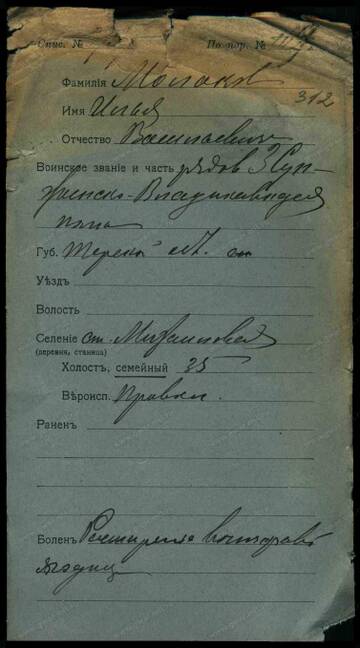 Спис. № По пор. №
312
Фамилія Молоко
Имя Илья
Отчество Васильевич
Воинское званіе и часть рядов 3 Сун-
женско-Владикавказ
полка
Губ. Терск
Уѣздъ
Волость
Селеніе ст. Михайловская
(деревня, станица)
Холостъ, семейный 35
Вѣроисп. Правосл.
Раненъ
Боленъ Расширение
ягодиц